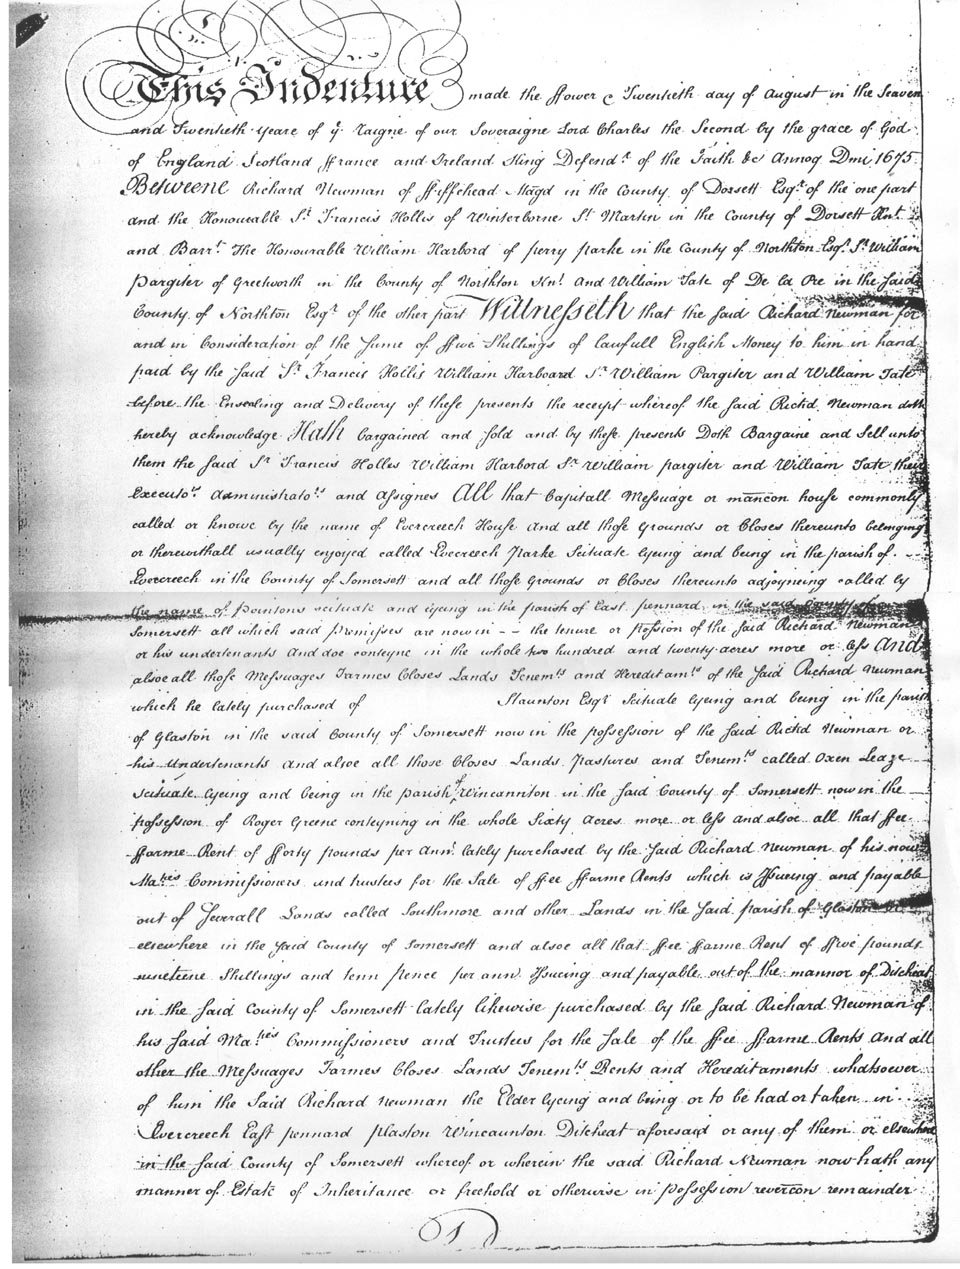 This Indenture made the ffower & Twentieth day of August in the Seaven
and Twentieth yeare of ye. raigne of our Soveraigne Lord Charles the Second by the grace of God
of England Scotland ffrance and Ireland King Defendr. of the Faith &c Annoq Dmi 1675.
Betweene Richard Newman of ffiffehead Magd in the County of Dorsett Esqr. of the one part
and the Honourable Sr. Francis Hollis of Winterborne St Martin in the County of Dorsett Knt.
and Barrt. The Honourable William Harbord of perry parke in the County of Northton Esqr. Sr. William
Pargiter of Greetworth in the County of Northton Knt. And William Tate of De La Pre in the said
County of Northton Esqr. of the other part Wittnesseth that the said Richard Newman for
and in Consideration of the sume of ffive Shillings of lawfull English Money to him in hand
paid by the said Sr. Francis Hollis William Harboard Sr. William Pargiter and William Tate
before the Ensealing and Delivery of these presents the receipt whereof the said Richd. Newman doth
hereby acknowledge Hath bargained and sold and by these presents Doth Bargaine and Sell unto
them the said Sr Francis Holles William Harbord Sr William pargiter and William Tate their
Executors. Administrators. and Assignes All that Capitall Messuage or mancon house commonly
called or knowe by the name of Evercreech House And all those Grounds or Closes thereunto belonging
or therewithall usually enjoyed called Evercreech Parke Scituate lyeing and being in the parish of
Evercreech in the County of Somersett and all those Grounds or Closes thereunto adjoyneing called by
the name of Pointons scituate and lyeing in the parish of East pennard in the said County of
Somersett all which said Premisses are now in -- the tenure or possion of the said Richard Newman
or his undertenants And doe conteyne in the whole two hundred and twenty acres more or less And
alsoe all those Messuages Farmes Closes Lands Tenemts and Hereditamts of the said Richard Newman
which he lately purchased of Staunton Esqr Scituate lyeing and being in the parish
of Glaston in the said County of Somersett now in the possession of the said Richd Newman or
his Undertenants And alsoe all those Closes Lands Pastures and Tenemts called Oxen Leaze
scituate lyeing and being in the parish of Wincannton in the said County of Somersett now in the
possession of Roger Greene conteyning in the whole Sixty Acres more or less and alsoe all that ffee
ffarme Rent of fforty pounds per Ann. lately purchased by the said Richard Newman of his now
Maties Commissioners and trustees for the Sale of ffee ffarme Rents which is Issueing and payable
out of severall Lands called Southmore and other Lands in the said parish of Glaston or
elsewhere in the said County of Somersett and alsoe all that ffee ffarme Rent of ffive pounds
nineteine Shillings and tenn pence per ann Issueing and payable out of the mannor of Ditcheat
in the said County of Somersett lately likewise purchased by the said Richard Newman of
his said Maties Commissioners and Trustees for the Sale of the ffee ffarme Rents And all
other the Messuages Farmes Closes Lands Tenemts Rents and Hereditaments whatsoever
of him the said Richard Newman the Elder lyeing and being or to be had or taken in
Evercreech East pennard Glaston Wincaunton Ditcheat aforesaid or any of them or elsewhere
in the said County of Somersett whereof or wherein the said Richard Newman now hath any
manner of Estate of Inheritance or freehold or otherwise in possession revercon remainder
1